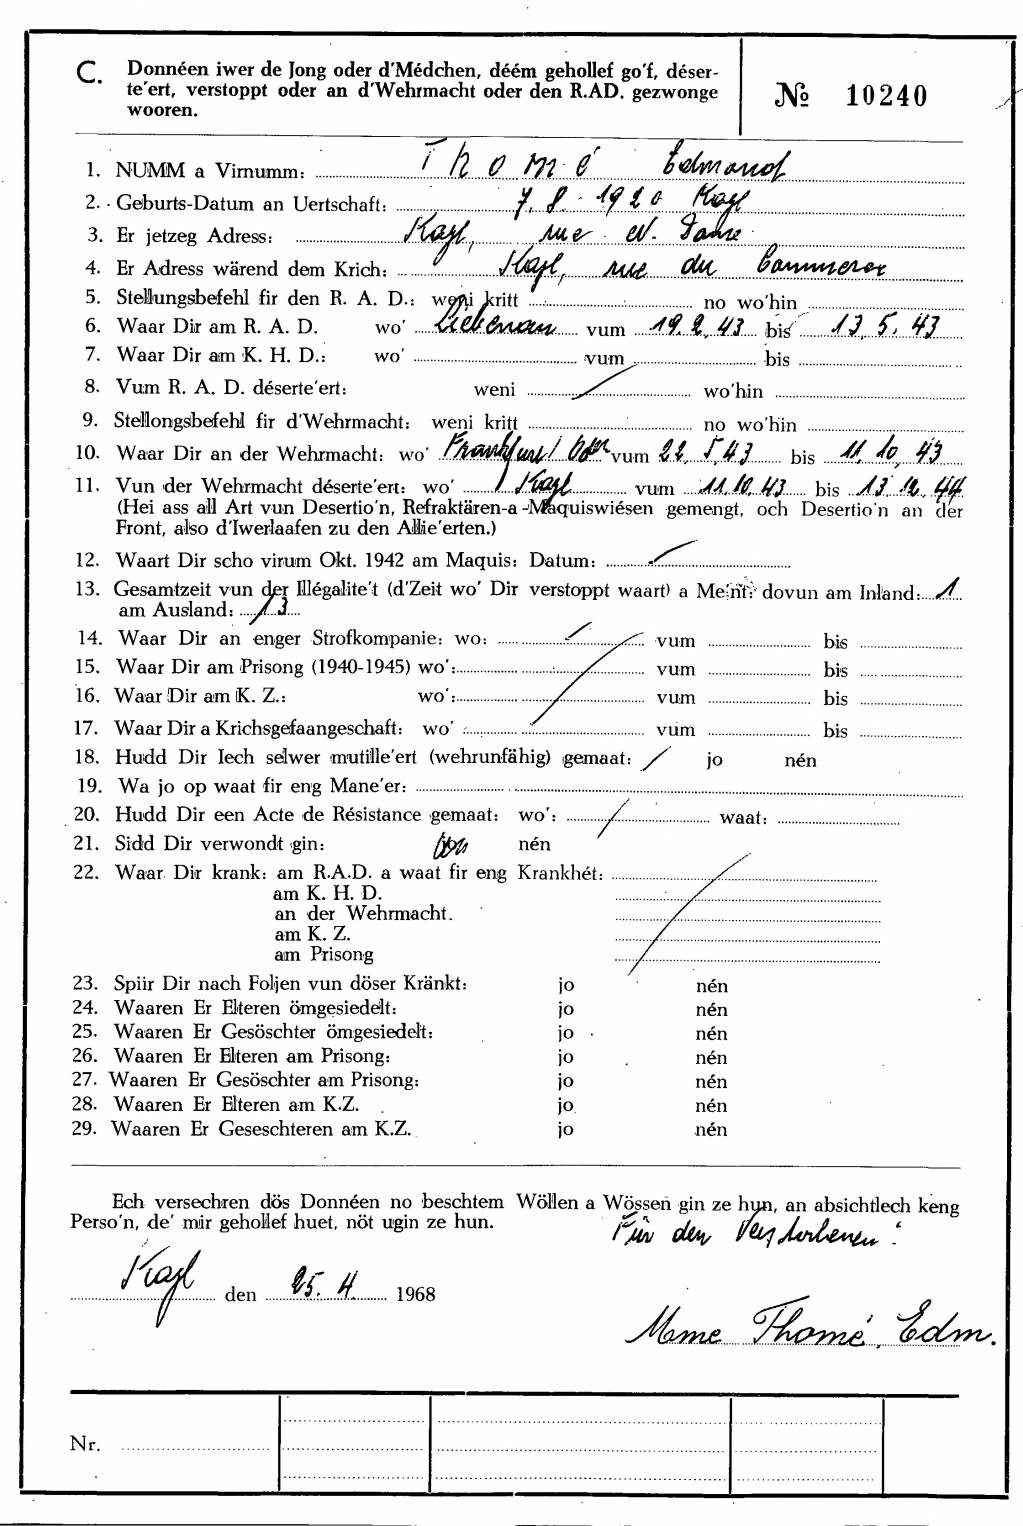 C. Donnéen iwer de Jong oder d'Médchen, déém gehollef go'f, déser-
te'ert, verstoppt oder an d'Wehrmacht oder den R.AD. gezwonge
wooren.
№ 10240
1. NUMM a Virnumm: Thomé Edmond
2. Geburts-Datum an Uertschaft: 7. 8. 1920 Kayl
3. Er jetzeg Adress: Kayl, rue
4. Er Adress wärend dem Krich: Kayl, rue du Commerce
5. Stellungsbefehl fir den R. A. D.: weni kritt no wo'hin
6. Waar Dir am R. A. D. wo' Liebenau vum 19.2.43 bis 13.5.43
7. Waar Dir am K. H. D.: wo' vum bis
8. Vum R. A. D. déserte'ert: weni wo'hin
9. Stellongsbefehl fir d'Wehrmacht: weni kritt no wo'hin
10. Waar Dir an der Wehrmacht: wo' Frankfurt/Oder vum 22.5.43 bis 11.10.43
11. Vun der Wehrmacht déserte'ert: wo' Kayl vum 11.10.43 bis 13.12.44
(Hei ass all Art vun Desertio'n, Refraktären-a-Maquiswiésen gemengt, och Desertio'n an der
Front, also d'Iwerlaafen zu den Allie'erten.)
12. Waart Dir scho virum Okt. 1942 am Maquis: Datum:
13. Gesamtzeit vun der Illégalite't (d'Zeit wo' Dir verstoppt waart) a Me'nt: dovun am Inland: 1
am Ausland: 13
14. Waar Dir an enger Strofkompanie: wo: vum bis
15. Waar Dir am Prisong (1940-1945) wo': vum bis
16. Waar Dir am K. Z.: wo': vum bis
17. Waar Dir a Krichsgefaangeschaft: wo' vum bis
18. Hudd Dir Iech selwer mutille'ert (wehrunfähig) gemaat: jo nén
19. Wa jo op waat fir eng Mane'er:
20. Hudd Dir een Acte de Résistance gemaat: wo': waat:
21. Sidd Dir verwondt gin: nén
22. Waar Dir krank: am R.A.D. a waat fir eng Krankhét:
am K. H. D.
an der Wehrmacht.
am K. Z.
am Prisong
23. Spiir Dir nach Foljen vun döser Kränkt: jo nén
24. Waaren Er Elteren ömgesiedelt: jo nén
25. Waaren Er Gesöschter ömgesiedelt: jo nén
26. Waaren Er Elteren am Prisong: jo nén
27. Waaren Er Gesöschter am Prisong: jo nén
28. Waaren Er Elteren am K.Z. jo nén
29. Waaren Er Geseschteren am K.Z. jo nén
Ech versechren dös Donnéen no beschtem Wöllen a Wössen gin ze hun, an absichtlech keng
Perso'n, de' mir gehollef huet, nöt ugin ze hun.
Für den Verstorbenen:
Kayl den 25.4. 1968
Mme Thomé, Edm.
Nr.